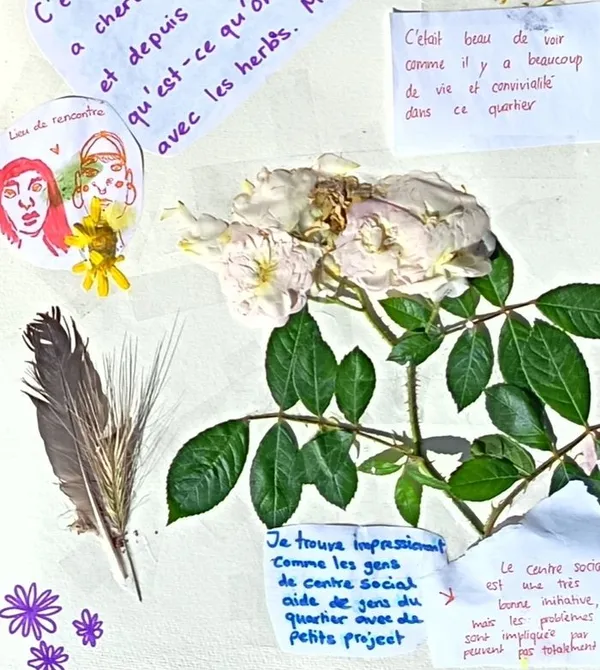 a cher
et depuis
qu'est-ce qu'o
avec les herbs.
C'était beau de voir
comme il y a beaucoup
de vie et convivialité
dans ce quartier
Lieu de rencontre
Je trouve impressionant
comme les gens
de centre social
aide de gens du
quartier avec de
petits project
Le centre socia
est une très
bonne initiative,
mais les problèmes
sont impliquée par
peuvent pas totalement